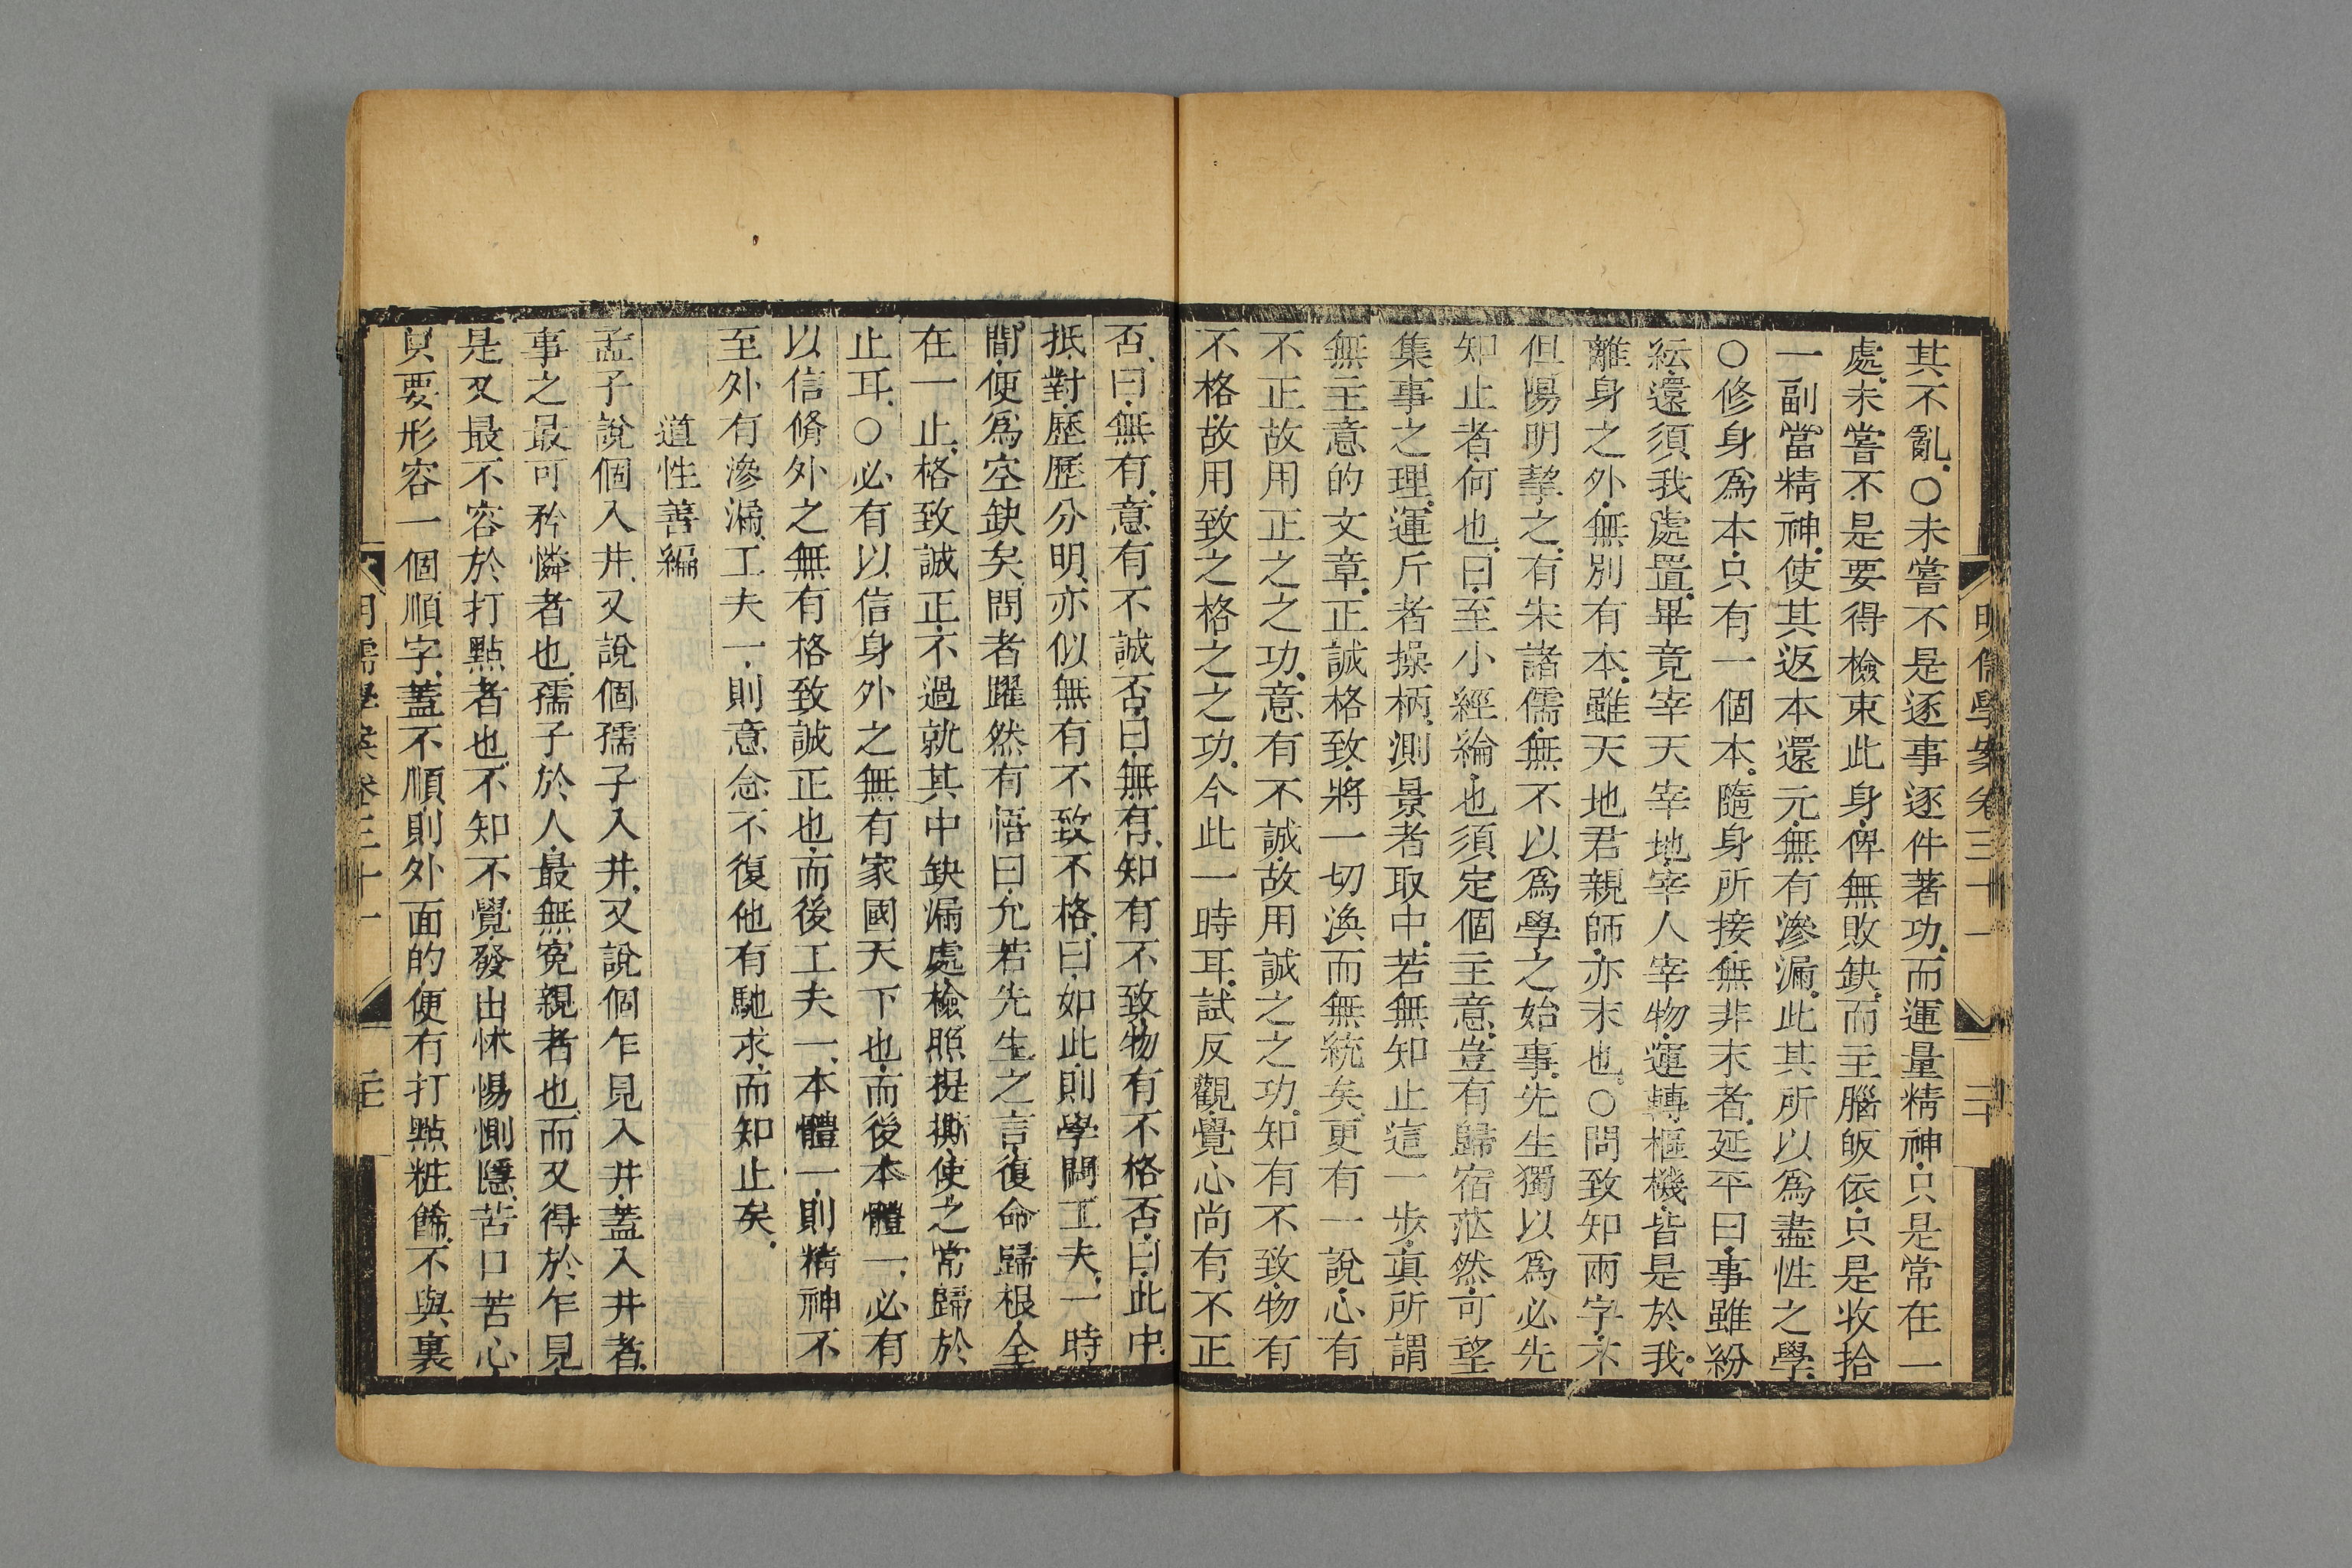 明儒學案卷三十一
二十
其不亂○未嘗不是逐事逐件著功而運量精神只是常在一
處未嘗不是要得檢束此身俾無敗缺而主腦皈依只是收拾
一副當精神使其返本還元無有滲漏此其所以爲盡性之學
○修身爲本只有一個本隨身所接無非末者延平曰事雖紛
紜還須我處置畢竟宰天宰地宰人宰物運轉樞機皆是於我
離身之外無別有本雖天地君親師亦末也○問致知兩字不
但陽明拏之有朱諸儒無不以爲學之始事先生獨以爲必先
知止者何也曰至小經綸也須定個主意豈有歸宿茫然可望
集事之理運斤者操柄測景者取中若無知止這一步真所謂
無主意的文章正誠格致將一切渙而無統矣更有一說心有
不正故用正之之功意有不誠故用誠之之功知有不致物有
不格故用致之格之之功今此一時耳試反觀覺心尚有不正
否曰無有意有不誠否曰無有知有不致物有不格否曰此中
抵對歷歷分明亦似無有不致不格曰如此則學問工夫一時
間便爲空缺矣問者躍然有悟曰允若先生之言復命歸根全
在一止格致誠正不過就其中缺漏處檢照提撕使之常歸於
止耳○必有以信身外之無有家國天下也而後本體一必有
以信脩外之無有格致誠正也而後工夫一本體一則精神不
至外有滲漏工夫一則意念不復他有馳求而知止矣
道性善編
孟子說個入井又說個孺子入井又說個乍見入井蓋入井者
事之最可矜憐者也孺子於人最無寃親者也而又得於乍見
是又最不容於打點者也不知不覺發出怵惕惻隱苦口苦心
只要形容一個順字蓋不順則外面的便有打點粧餙不與裏
明儒學案卷三十一